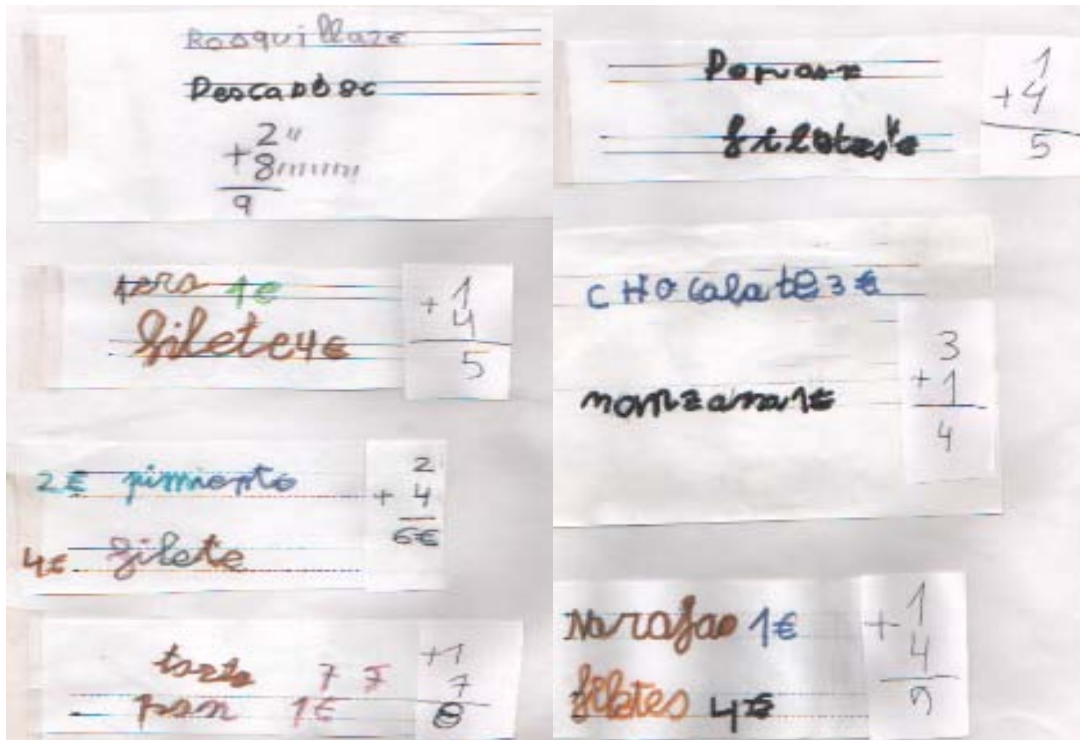 Rosquillaz€
Pescado 8€
2 "
+ 8 """"
9
pera 1€
filete 4€
+ 1
4
5
2€ pimiento
4€ filete
2
+ 4
6€
tarta 7 7
pan 1€
+1
7
8
1
+ 4
5
CHOcalate 3€
manzana 1€
3
+ 1
4
Narafao 1€
filetes 4€
+ 1
4
5